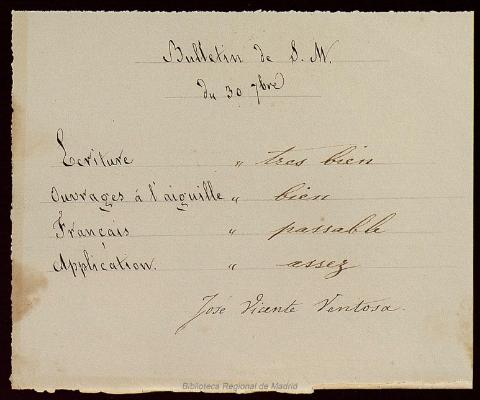 Bulletin de S. M.
du 30 7bre
Ecriture " tres bien
Ouvrages á l'aiguille " bien
Français " passable
Application. " assez
José Vicente Ventosa.
Biblioteca Regional de Madrid